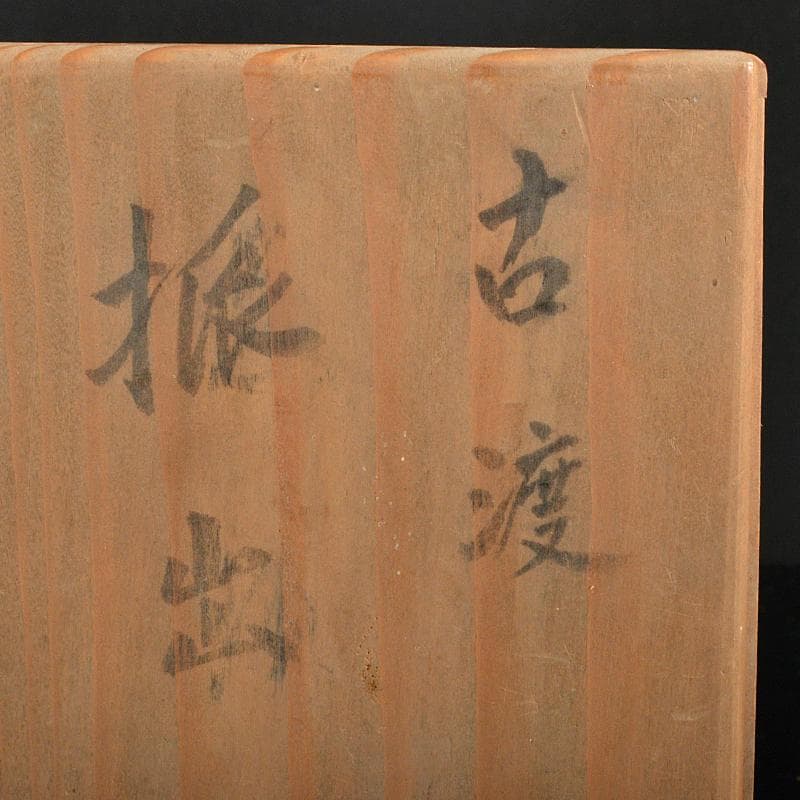 古渡
振出